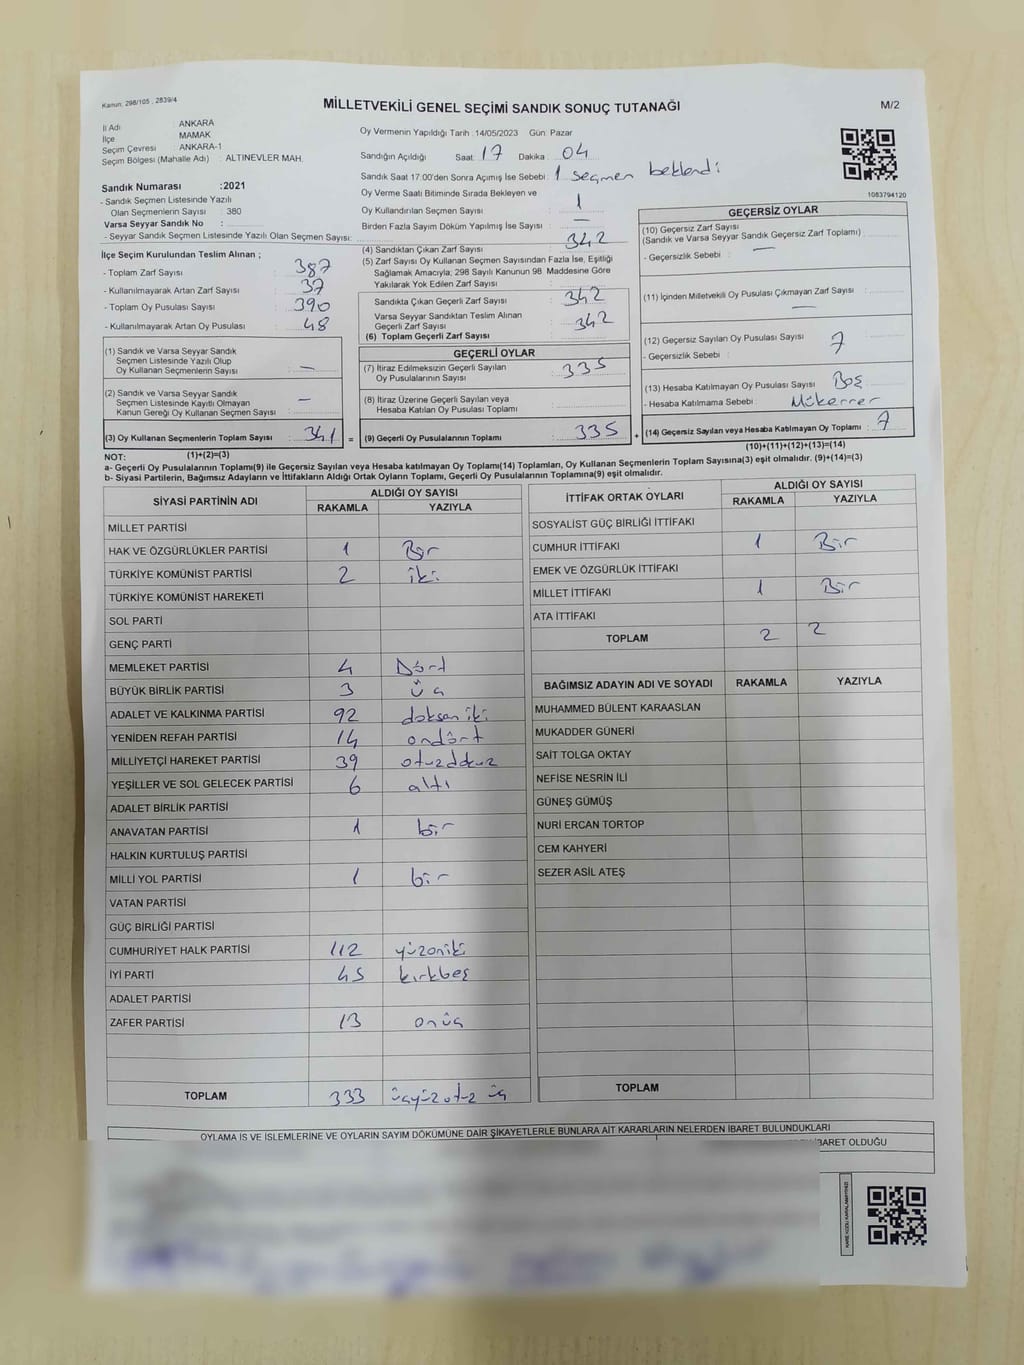 Kanun: 298/105 , 2839/4
MİLLETVEKİLİ GENEL SEÇİMİ SANDIK SONUÇ TUTANAĞI
M/2
İl Adı : ANKARA
İlçe : MAMAK
Seçim Çevresi : ANKARA-1
Seçim Bölgesi (Mahalle Adı) : ALTINEVLER MAH.
Oy Vermenin Yapıldığı Tarih : 14/05/2023 Gün: Pazar
Sandığın Açıldığı Saat : 17 Dakika : 04
Sandık Saat 17:00'den Sonra Açımış İse Sebebi : 1 seçmen beklendi
Oy Verme Saati Bitiminde Sırada Bekleyen ve
Oy Kullandırılan Seçmen Sayısı : 1
Birden Fazla Sayım Döküm Yapılmış İse Sayısı : —
1083794120
Sandık Numarası :2021
- Sandık Seçmen Listesinde Yazılı
Olan Seçmenlerin Sayısı : 380
Varsa Seyyar Sandık No :
- Seyyar Sandık Seçmen Listesinde Yazılı Olan Seçmen Sayısı:
İlçe Seçim Kurulundan Teslim Alınan ;
- Toplam Zarf Sayısı : 387
- Kullanılmayarak Artan Zarf Sayısı : 37
- Toplam Oy Pusulası Sayısı : 390
- Kullanılmayarak Artan Oy Pusulası : 48
(1) Sandık ve Varsa Seyyar Sandık
Seçmen Listesinde Yazılı Olup
Oy Kullanan Seçmenlerin Sayısı : —
(2) Sandık ve Varsa Seyyar Sandık
Seçmen Listesinde Kayıtlı Olmayan
Kanun Gereği Oy Kullanan Seçmen Sayısı : —
(3) Oy Kullanan Seçmenlerin Toplam Sayısı : 341 =
(4) Sandıktan Çıkan Zarf Sayısı : 342
(5) Zarf Sayısı Oy Kullanan Seçmen Sayısından Fazla İse, Eşitliği
Sağlamak Amacıyla; 298 Sayılı Kanunun 98. Maddesine Göre
Yakılarak Yok Edilen Zarf Sayısı :
Sandıkta Çıkan Geçerli Zarf Sayısı : 342
Varsa Seyyar Sandıktan Teslim Alınan
Geçerli Zarf Sayısı : 342
(6) Toplam Geçerli Zarf Sayısı :
GEÇERLİ OYLAR
(7) İtiraz Edilmeksizin Geçerli Sayılan
Oy Pusulalarının Sayısı : 335
(8) İtiraz Üzerine Geçerli Sayılan veya
Hesaba Katılan Oy Pusulası Toplamı :
(9) Geçerli Oy Pusulalarının Toplamı : 335 +
GEÇERSİZ OYLAR
(10) Geçersiz Zarf Sayısı
(Sandık ve Varsa Seyyar Sandık Geçersiz Zarf Toplamı) : —
- Geçersizlik Sebebi :
(11) İçinden Milletvekili Oy Pusulası Çıkmayan Zarf Sayısı : —
(12) Geçersiz Sayılan Oy Pusulası Sayısı : 7
- Geçersizlik Sebebi :
(13) Hesaba Katılmayan Oy Pusulası Sayısı : Boş
- Hesaba Katılmama Sebebi : Mükerrer
(14) Geçersiz Sayılan veya Hesaba Katılmayan Oy Toplamı : 7
NOT: (1)+(2)=(3) (10)+(11)+(12)+(13)=(14)
a- Geçerli Oy Pusulalarının Toplamı(9) ile Geçersiz Sayılan veya Hesaba katılmayan Oy Toplamı(14) Toplamları, Oy Kullanan Seçmenlerin Toplam Sayısına(3) eşit olmalıdır. (9)+(14)=(3)
b- Siyasi Partilerin, Bağımsız Adayların ve İttifakların Aldığı Ortak Oyların Toplamı, Geçerli Oy Pusulalarının Toplamına(9) eşit olmalıdır.
SİYASİ PARTİNİN ADI ALDIĞI OY SAYISI
RAKAMLA YAZIYLA
MİLLET PARTİSİ
HAK VE ÖZGÜRLÜKLER PARTİSİ 1 Bir
TÜRKİYE KOMÜNİST PARTİSİ 2 iki
TÜRKİYE KOMÜNİST HAREKETİ
SOL PARTİ
GENÇ PARTİ
MEMLEKET PARTİSİ 4 Dört
BÜYÜK BİRLİK PARTİSİ 3 üç
ADALET VE KALKINMA PARTİSİ 92 doksan iki
YENİDEN REFAH PARTİSİ 14 ondört
MİLLİYETÇİ HAREKET PARTİSİ 39 otuzdokuz
YEŞİLLER VE SOL GELECEK PARTİSİ 6 altı
ADALET BİRLİK PARTİSİ
ANAVATAN PARTİSİ 1 bir
HALKIN KURTULUŞ PARTİSİ
MİLLİ YOL PARTİSİ 1 bir
VATAN PARTİSİ
GÜÇ BİRLİĞİ PARTİSİ
CUMHURİYET HALK PARTİSİ 112 yüzoniki
İYİ PARTİ 45 kırkbeş
ADALET PARTİSİ
ZAFER PARTİSİ 13 onüç
TOPLAM 333 üçyüzotuz üç
İTTİFAK ORTAK OYLARI ALDIĞI OY SAYISI
RAKAMLA YAZIYLA
SOSYALİST GÜÇ BİRLİĞİ İTTİFAKI
CUMHUR İTTİFAKI 1 Bir
EMEK VE ÖZGÜRLÜK İTTİFAKI
MİLLET İTTİFAKI 1 Bir
ATA İTTİFAKI
TOPLAM 2 2
BAĞIMSIZ ADAYIN ADI VE SOYADI RAKAMLA YAZIYLA
MUHAMMED BÜLENT KARAASLAN
MUKADDER GÜNERİ
SAİT TOLGA OKTAY
NEFİSE NESRİN İLİ
GÜNEŞ GÜMÜŞ
NURİ ERCAN TORTOP
CEM KAHYERİ
SEZER ASİL ATEŞ
TOPLAM
OYLAMA İŞ VE İŞLEMLERİNE VE OYLARIN SAYIM DÖKÜMÜNE DAİR ŞİKAYETLERLE BUNLARA AİT KARARLARIN NELERDEN İBARET BULUNDUKLARI
İBARET OLDUĞU
KARE KODU KARALAMAYINIZ!